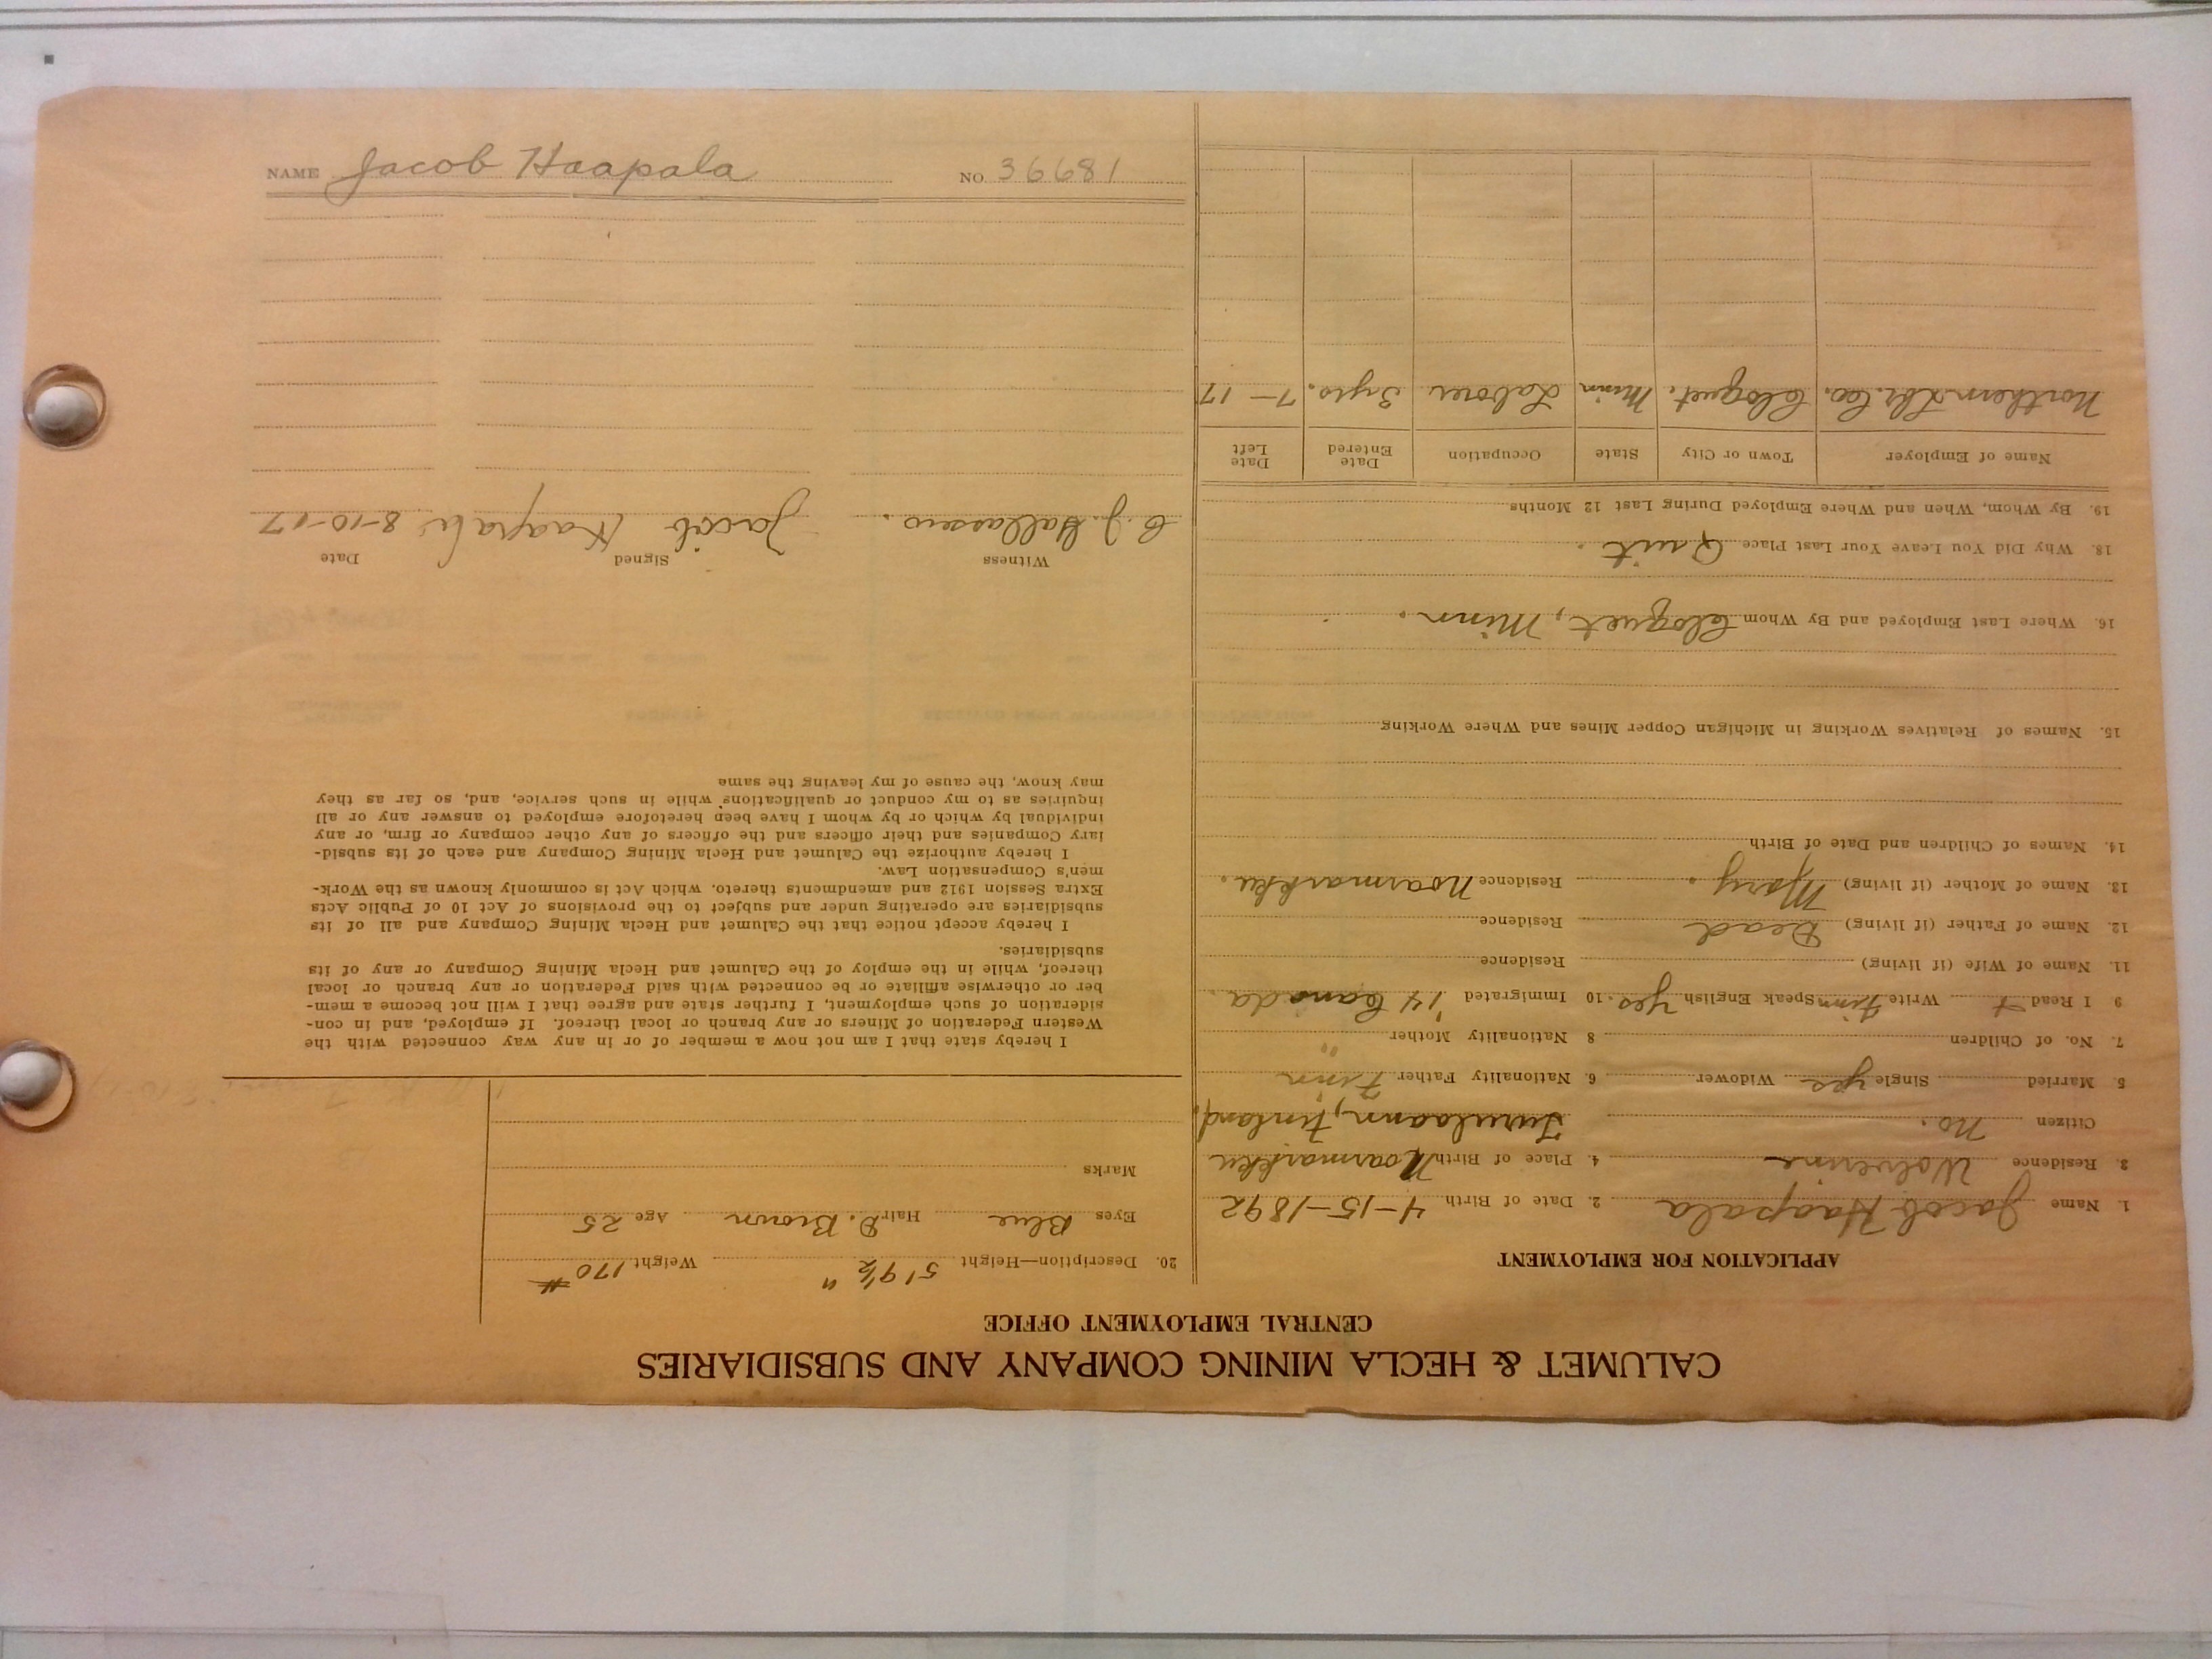 CALUMET & HECLA MINING COMPANY AND SUBSIDIARIES
CENTRAL EMPLOYMENT OFFICE
APPLICATION FOR EMPLOYMENT
1. Name Jacob Haapala 2. Date of Birth 4-15-1892
3. Residence Wolverine 4. Place of Birth Noarmarkku
Citizen no. Finland.
5 Married Single yes Widower 6. Nationality Father Finn
7. No. of Children 8 Nationality Mother "
9 I Read + Write Finn Speak English Yes. 10 Immigrated '14 Canada.
11. Name of Wife (if living) Residence
12. Name of Father (if living) Dead Residence
13. Name of Mother (if living) Mary. Residence Noarmarkku.
14. Names of Children and Date of Birth
15. Names of Relatives Working in Michigan Copper Mines and Where Working
16. Where Last Employed and By Whom Cloquet, Minn.
18. Why Did You Leave Your Last Place Quit.
19. By Whom, When and Where Employed During Last 12 Months
Name of Employer Town or City State Occupation Date Entered Date Left
Northern Lbr. Co. Cloquet. Minn Laborer 3 yrs. 7-17
20. Description—Height 5' 9½" Weight 170 #
Eyes Blue Hair D. Brown Age 25
Marks
I hereby state that I am not now a member of or in any way connected with the
Western Federation of Miners or any branch or local thereof. If employed, and in con-
sideration of such employment, I further state and agree that I will not become a mem-
ber or otherwise affiliate or be connected with said Federation or any branch or local
thereof, while in the employ of the Calumet and Hecla Mining Company or any of its
subsidiaries.
I hereby accept notice that the Calumet and Hecla Mining Company and all of its
subsidiaries are operating under and subject to the provisions of Act 10 of Public Acts
Extra Session 1912 and amendments thereto, which Act is commonly known as the Work-
men's Compensation Law.
I hereby authorize the Calumet and Hecla Mining Company and each of its subsid-
iary Companies and their officers and the officers of any other company or firm, or any
individual by which or by whom I have been heretofore employed to answer any or all
inquiries as to my conduct or qualifications while in such service, and, so far as they
may know, the cause of my leaving the same
Witness Signed Date
C. J. Jacob Haapala 8-10-17
NAME Jacob Haapala NO 36681